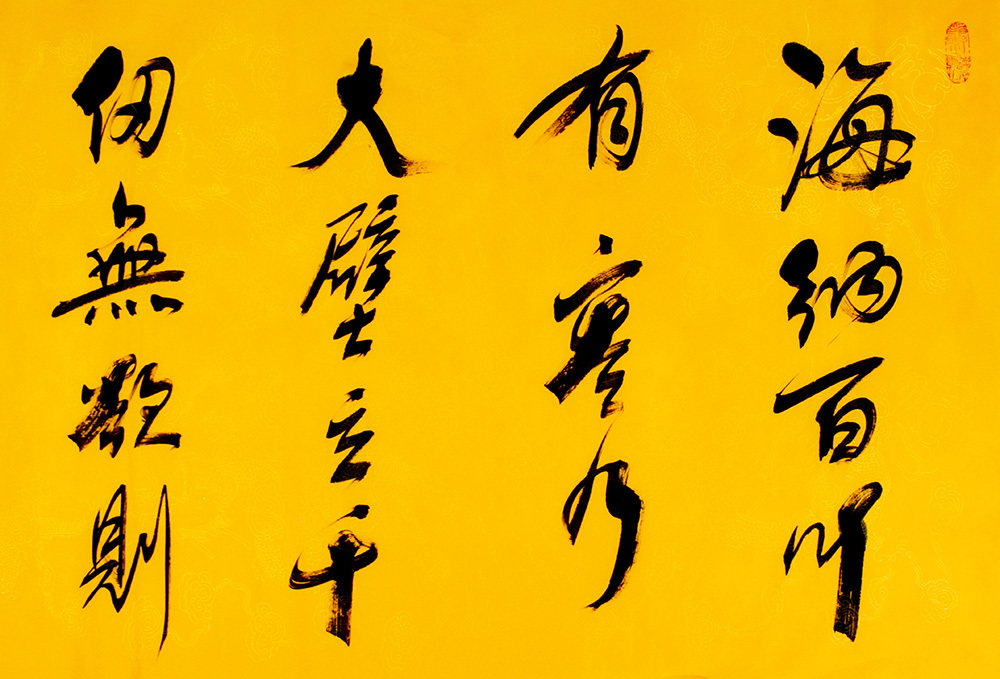 海納百川
有容乃
大壁立千
仞無欲則